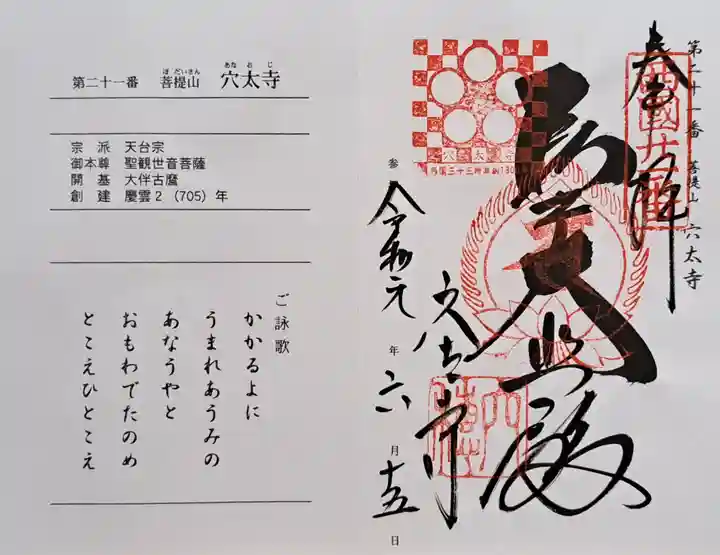 第二十一番 菩提山 穴太寺
ぼだいさん あなおじ
宗派 天台宗
御本尊 聖観世音菩薩
開基 大伴古麿
創建 慶雲2(705)年
ご詠歌
かかるよに
うまれあうみの
あなうやと
おもわでたのめ
とこえひとこえ
第二十一番 菩提山 穴太寺
奉拝
西國廿一番
大悲殿
穴太寺
穴太寺
参
令和元年六月十五日